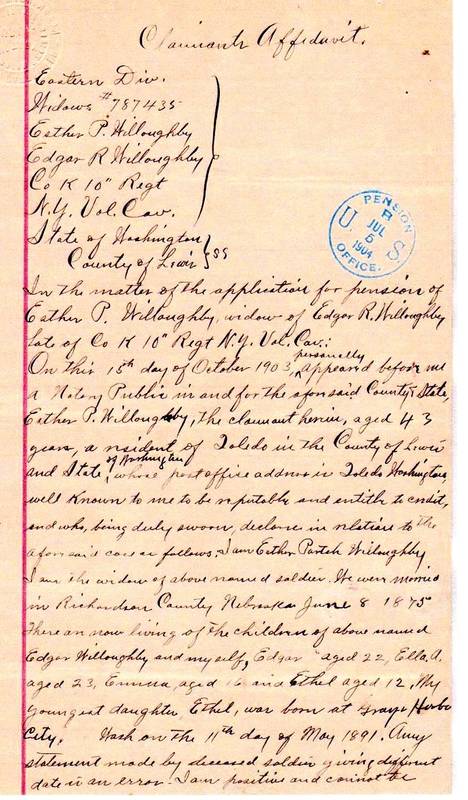 Claimants Affidavit.
Eastern Div.
Widows #787435
Esther P. Willoughby
Edgar R Willoughby
Co K 10" Regt
N.Y. Vol. Cav.
State of Washington
County of Lewis } SS
PENSION
R
JUL
5
1904
U. S.
OFFICE.
In the matter of the application for pension of
Esther P. Willoughby, widow of Edgar R. Willoughby
late of Co K 10" Regt N.Y. Vol. Cav.:
On this 15th day of October 1903, personally appeared before me
a Notary Public in and for the aforesaid County & State,
Esther P. Willoughby, the claimant herein, aged 43
years, a resident of Toledo in the County of Lewis
and State of Washington, whose post office address is Toledo Washington,
well known to me to be reputable and entitle to credit,
and who, being duly sworn, declares in relation to the
aforesaid case as follows; I am Esther Willoughby
I am the widow of above named soldier. We were married
in Richardson County, Nebraska June 8 1875
There are now living of the children of above named
Edgar Willoughby and myself, Edgar aged 22, Ella A.
aged 23, Emma, aged and Ethel aged 12, My
youngest daughter, Ethel, was born at Grays Harbor
City, Wash on the 11th day of May 1891. Any
statement made by deceased soldier giving different
date is an error. I am positive and cannot be